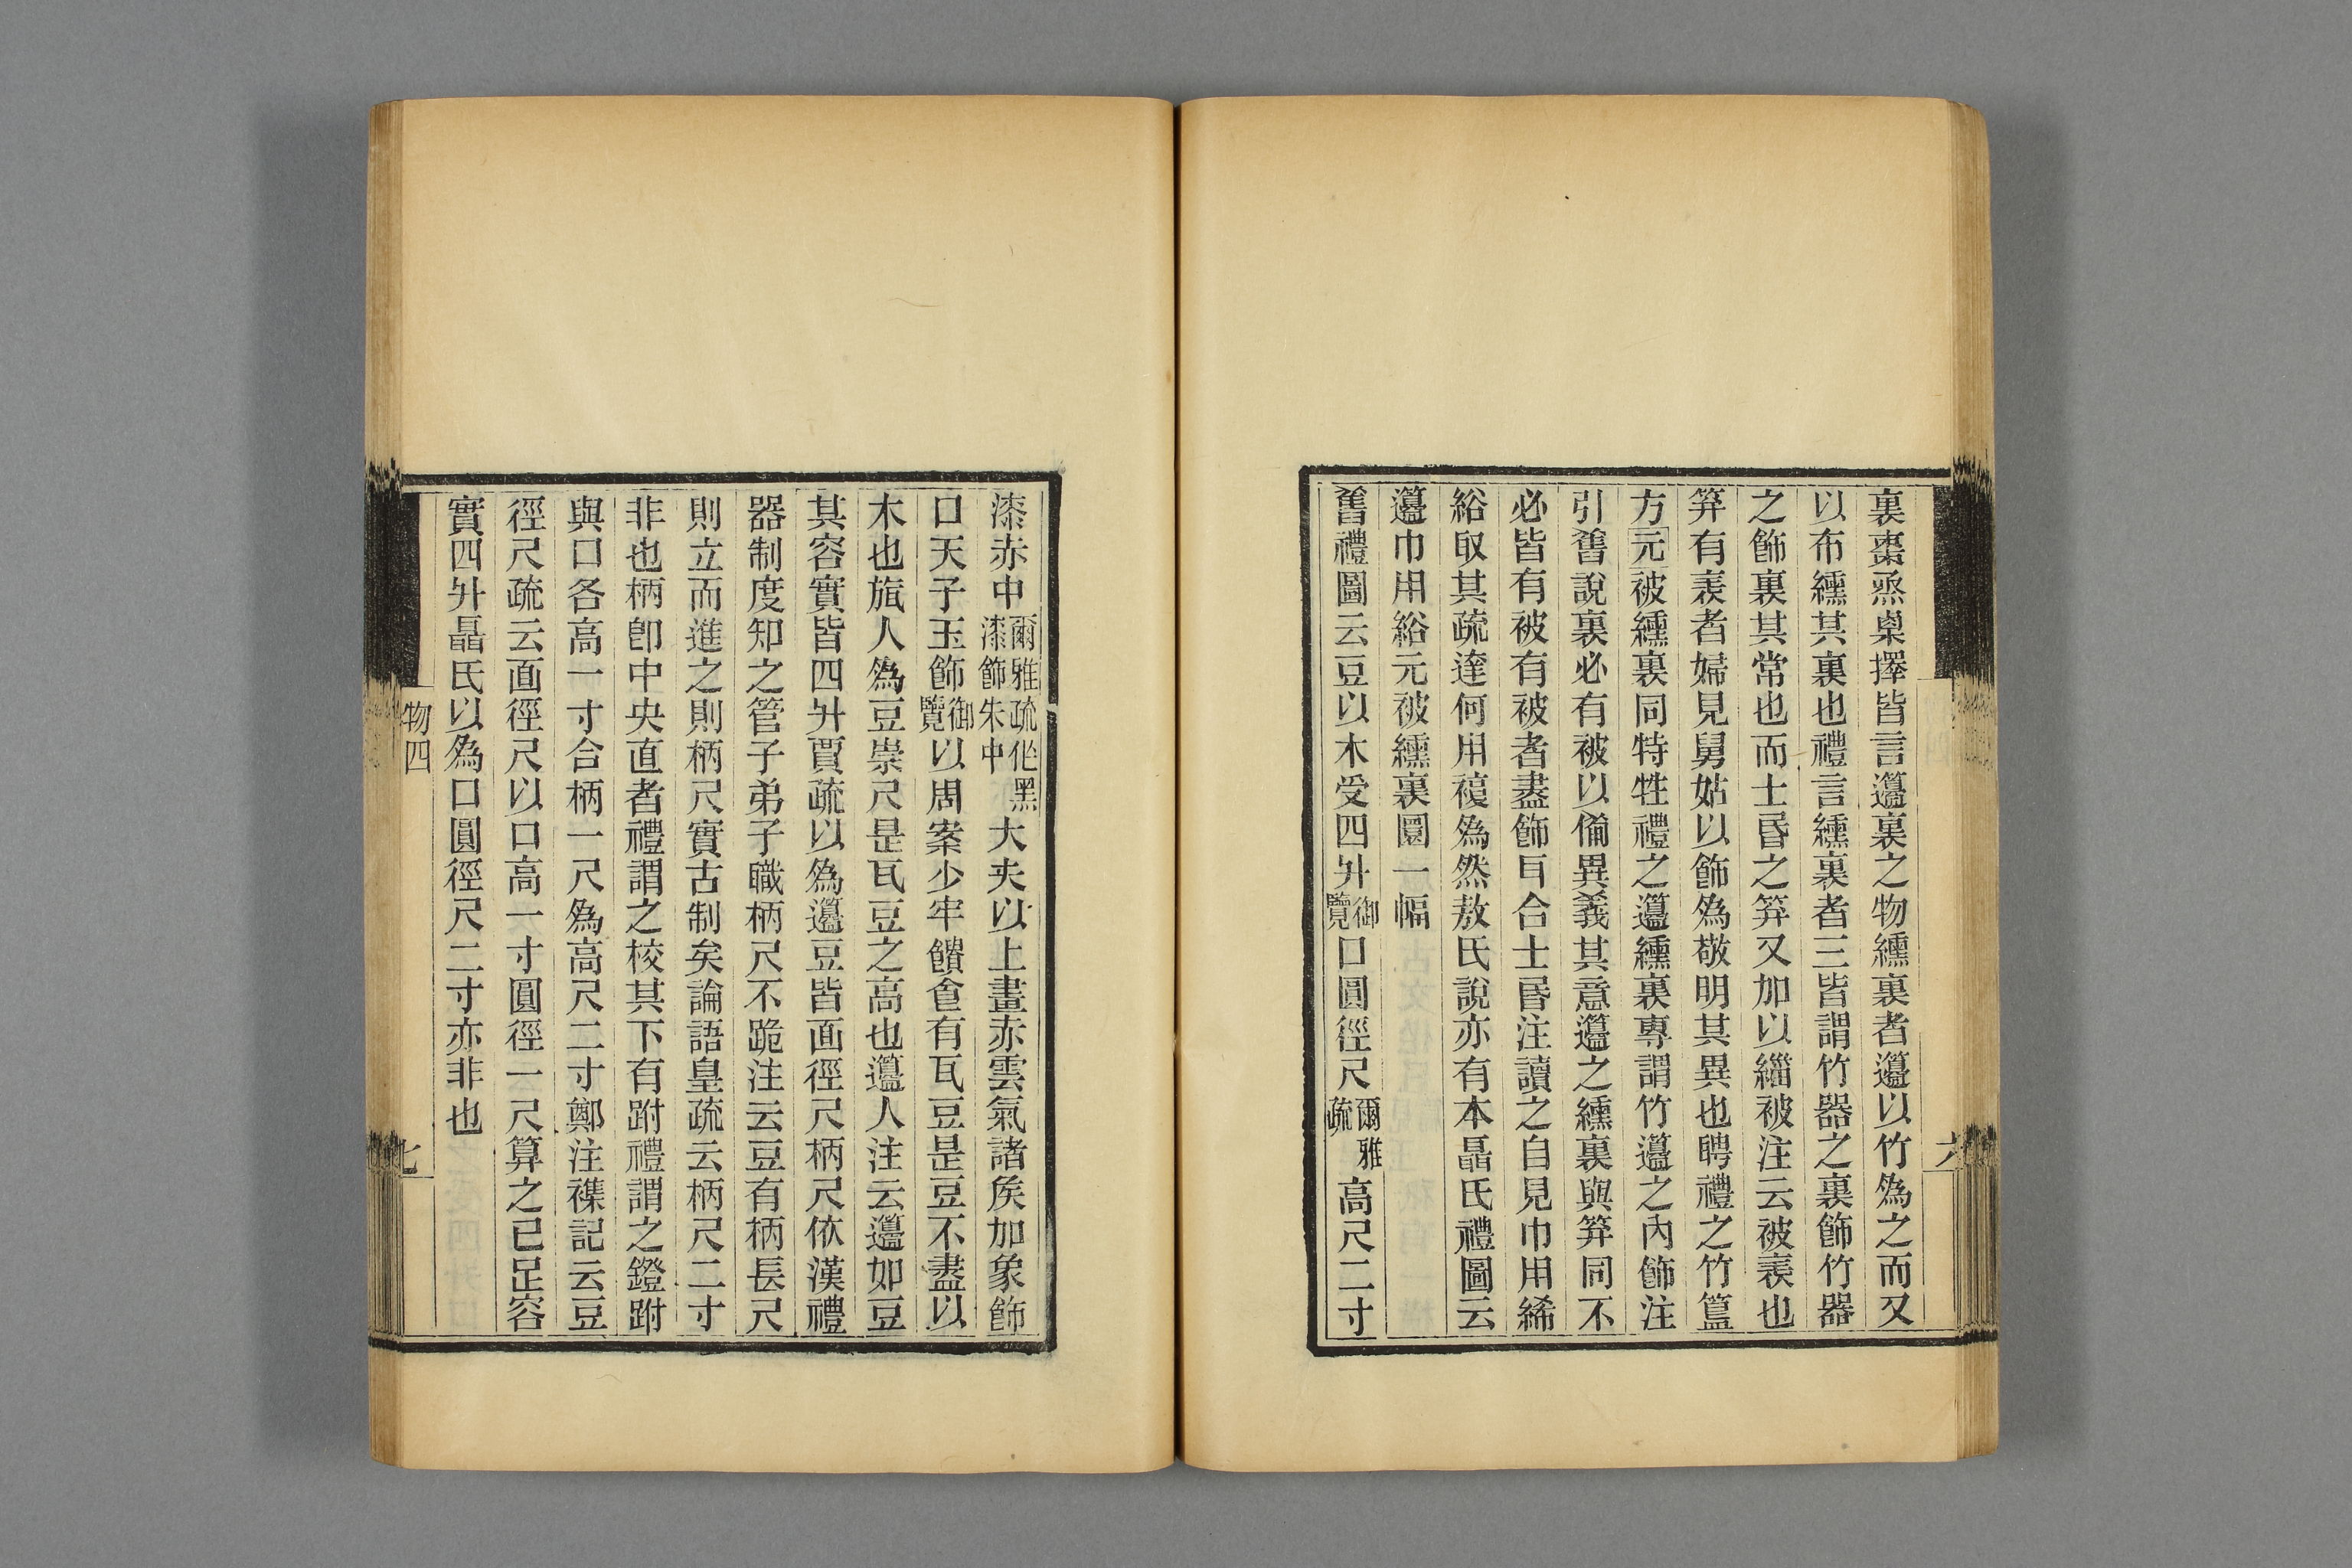 裏棗烝㮚擇皆言籩裏之物纁裏者籩以竹爲之而又
以布纁其裏也禮言纁裏者三皆謂竹器之裏飾竹器
之飾裏其常也而士昏之笲又加以緇被注云被表也
笲有表者婦見舅姑以飾爲敬明其異也聘禮之竹簠
方元被纁裏同特牲禮之籩纁裏專謂竹籩之內飾注
引舊說裏必有被以僃異義其意籩之纁裏與笲同不
必皆有被有被者盡飾耳合士昏注讀之自見巾用絺
綌取其疏達何用複爲然敖氏說亦有本聶氏禮圖云
籩巾用綌元被纁裏圜一幅
舊禮圖云豆以木受四升御覽口圓徑尺爾雅疏高尺二寸
漆赤中爾雅疏作黑漆飾朱中大夫以上畫赤雲氣諸矦加象飾
口天子玉飾御覽以周案少牢饋食有瓦豆是豆不盡以
木也旊人爲豆崇尺是瓦豆之高也籩人注云籩如豆
其容實皆四升賈疏以爲籩豆皆面徑尺柄尺依漢禮
器制度知之管子弟子職柄尺不跪注云豆有柄長尺
則立而進之則柄尺實古制矣論語皇疏云柄尺二寸
非也柄卽中央直者禮謂之校其下有跗禮謂之鐙跗
與口各高一寸合柄一尺爲高尺二寸鄭注襍記云豆
徑尺疏云面徑尺以口高一寸圓徑一尺算之已足容
實四升聶氏以爲口圓徑尺二寸亦非也
物四
七
六